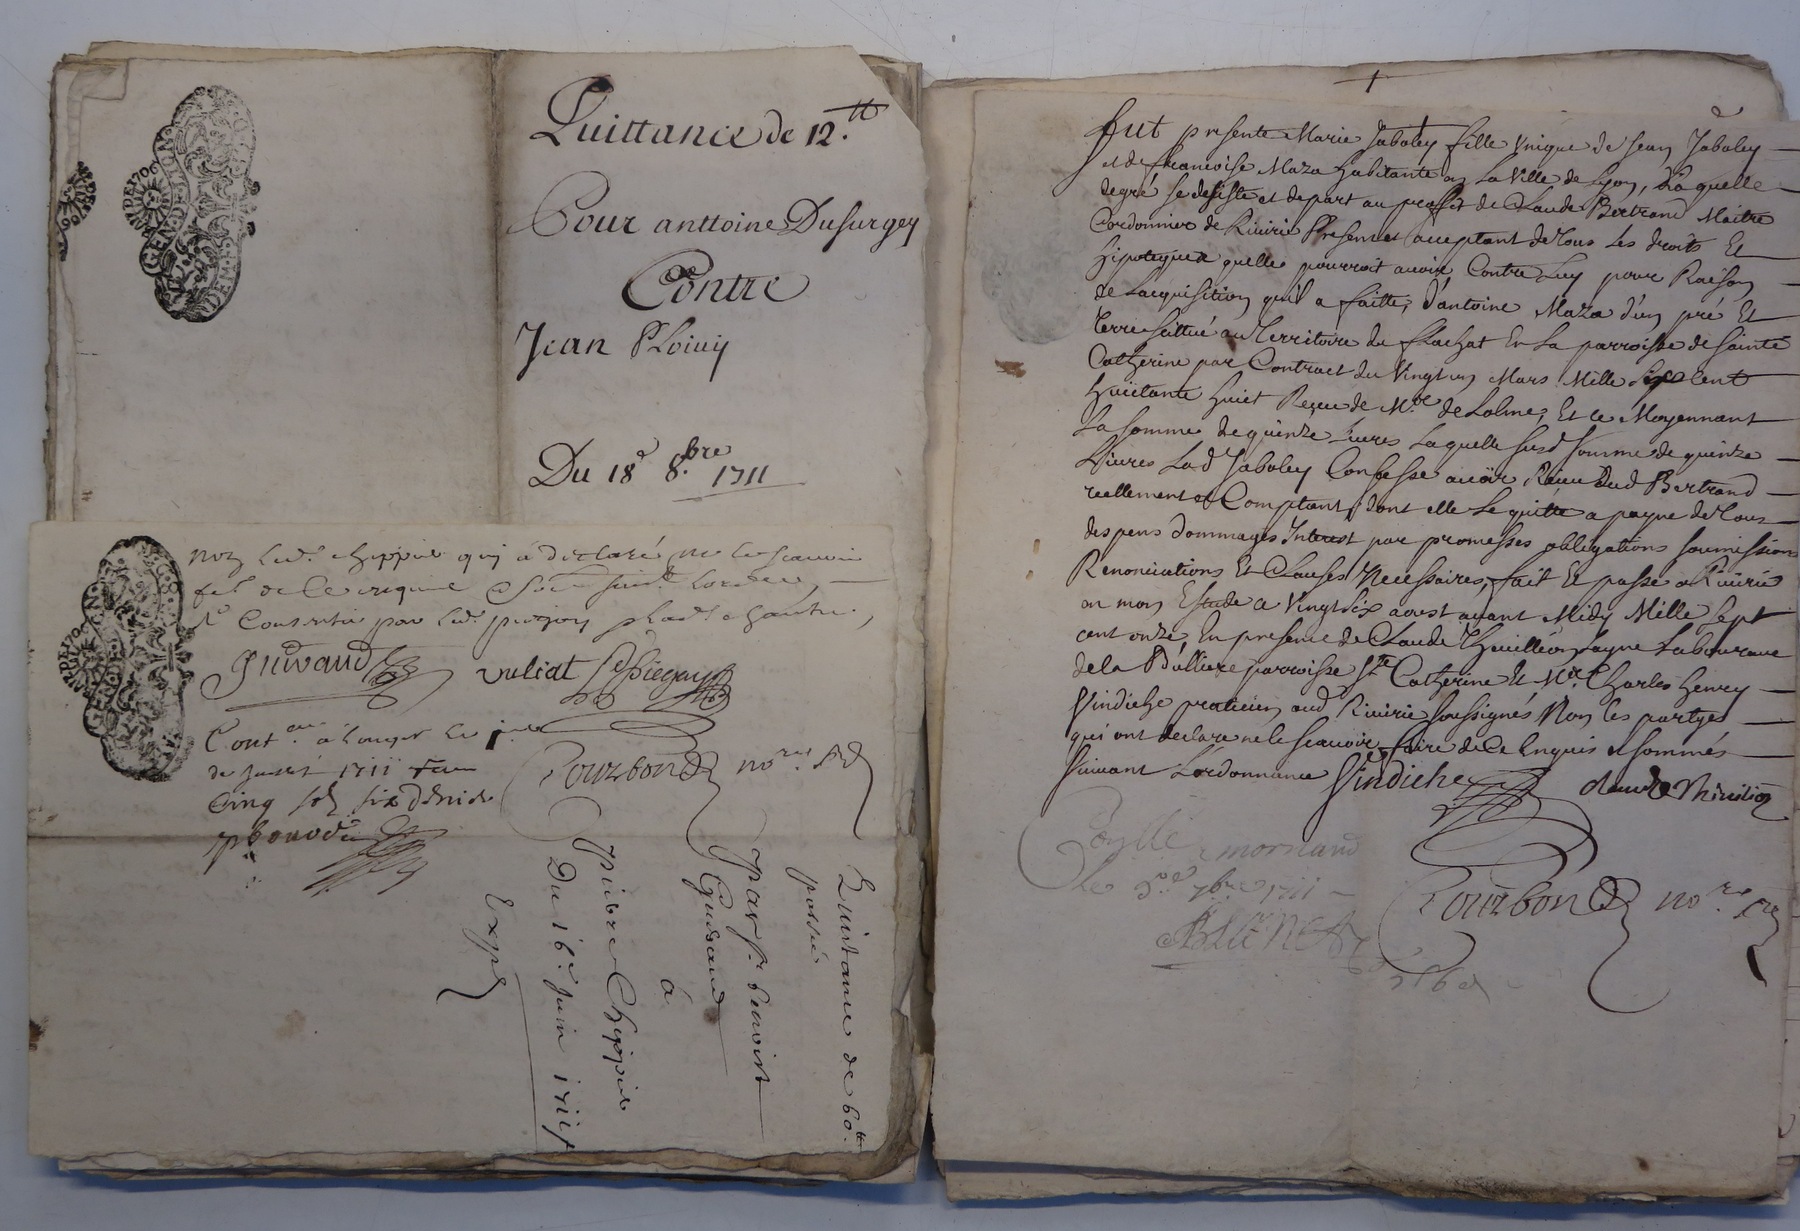 Quittance de 12.tt
Pour anttoine Dusurgey
Contre
Jean Ploivy
Du 18e 8.bre 1711
GEN DE LION
non led. chippier qui a declaré ne le scavoir
fe. de ce requis
et consentie par led.
Guiraud
Cont.
de juillet 1711
Cinq sols six deniers
Bourbon no.re
Quittance de 60.tt
passée
par Sr. benoist
Guiraud
à
pierre Chippier
Du 16e Juin 1711
Exp.
fut presente Marie Jaboley fille Unique de Jean Jaboley
et de francoise Maza habitante en La Ville de Lyon, Laquelle
degré se desiste et depart au proffit de Claude Bertrand Maitre
Cordonnier de Riuirie Present et acceptant de tous Les droits Et
hipoteques quelle pourroit avoir Contre Luy pour Raison
de Lacquisition quil a faitte, d'antoine Maza d'un pré Et
terre scittué au Territoire du flachat En La parroisse de Sainte
Catherine par Contract du Vingt un Mars Mille Six Cent
huittante huict Receu de M.e de Lolme, Et ce Moyennant
La somme de quinze Liures Laquelle susd. somme de quinze
Liures Lad. Jaboley Confesse auoir Receu dud. Bertrand
reellement et Comptant, dont elle Le quitte a payne de tous
despens dommages Interest par promesses obligations soumissions
Renonciations Et Clauses Necessaires, fait Et passé a Riuirie
en mon Estude a Vingt six aoust auant Midy Mille Sept
cent onze En presence de Claude Laboureur
de la Bulliere parroisse Ste Catherine Et M.re Charles henry
Vindiche praticien aud. Riuirie soussignés Non Les partyes
qui ont declaré ne le scauoir faire de Ce Enquis et sommés
suiuant Lordonnance Vindiche
Claude
Coллé a mornand
le 7bre 1711
Bourbon no.re